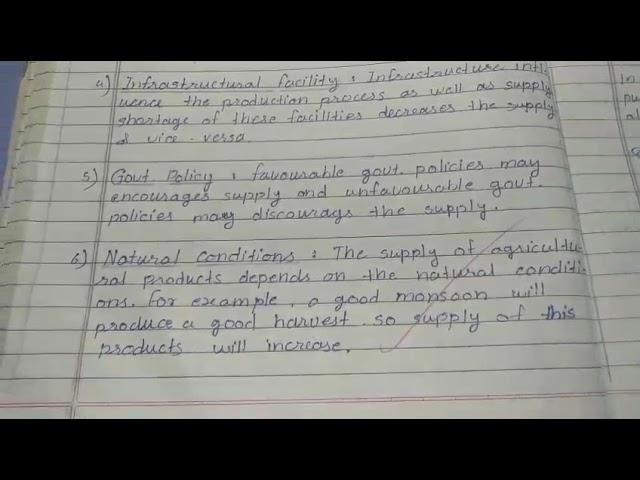 4) Infrastructural facility : Infrastructure infl-
uence the production process as well as supply
shortage of these facilities decreases the supply
& vice-versa.
5) Govt Policy : favourable govt. policies may
encourages supply and unfavourable govt.
policies may discourags the supply.
6) Natural conditions : The supply of agricultu-
ral products depends on the natural conditi-
ons. For example, a good monsoon will
produce a good harvest. so supply of this
products will increase.
In
pu
al